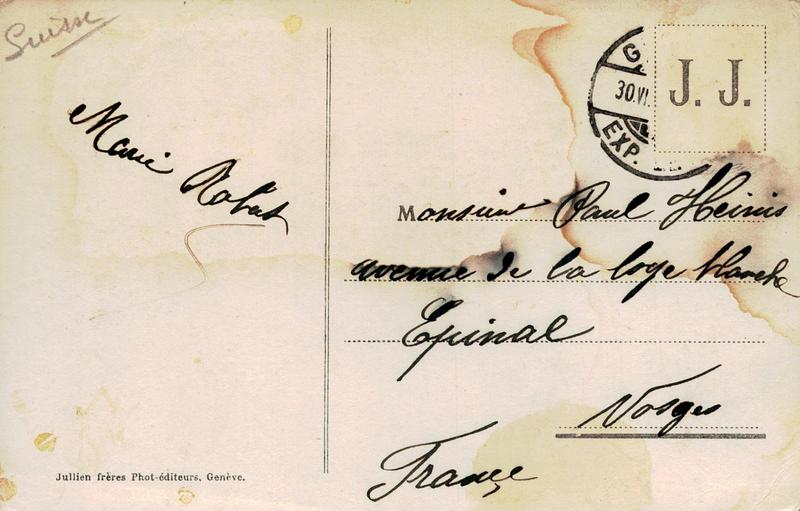 Suisse
G
30.VI.
EXP.
J. J.
Marie Robert
Monsieur Paul Heinis
avenue de la loge blanche
Epinal
Vosges
France
Jullien frères Phot-éditeurs, Genève.